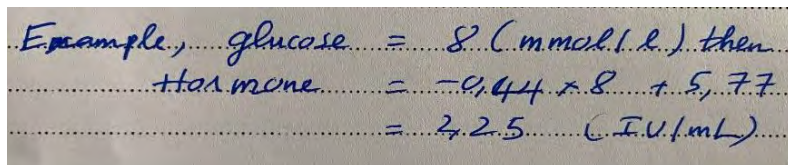 Example, glucose = 8 (mmol/l) then
Hormone = -0,44 × 8 + 5,77
= 2,25 (IU/mL)